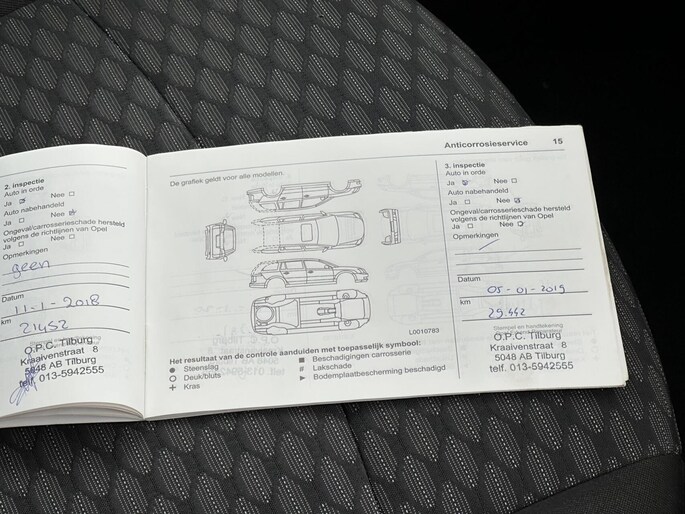 2. inspectie
Auto in orde
Ja Nee
Auto nabehandeld
Ja Nee
Ongeval/carrosserieschade hersteld
volgens de richtlijnen van Opel
Ja Nee
Opmerkingen
geen
Datum
11-1-2018
km
21452
O.P.C. Tilburg
Kraaivenstraat 8
5048 AB Tilburg
telf. 013-5942555
Anticorrosieservice 15
De grafiek geldt voor alle modellen.
L0010783
Het resultaat van de controle aanduiden met toepasselijk symbool:
Steenslag
Deuk/bluts
Kras
Beschadigingen carrosserie
# Lakschade
Bodemplaatbescherming beschadigd
3. inspectie
Auto in orde
Ja Nee
Auto nabehandeld
Ja Nee
Ongeval/carrosserieschade hersteld
volgens de richtlijnen van Opel
Ja Nee
Opmerkingen
Datum
05-01-2019
km
29.442
Stempel en handtekening
O.P.C. Tilburg
Kraaivenstraat 8
5048 AB Tilburg
telf. 013-5942555